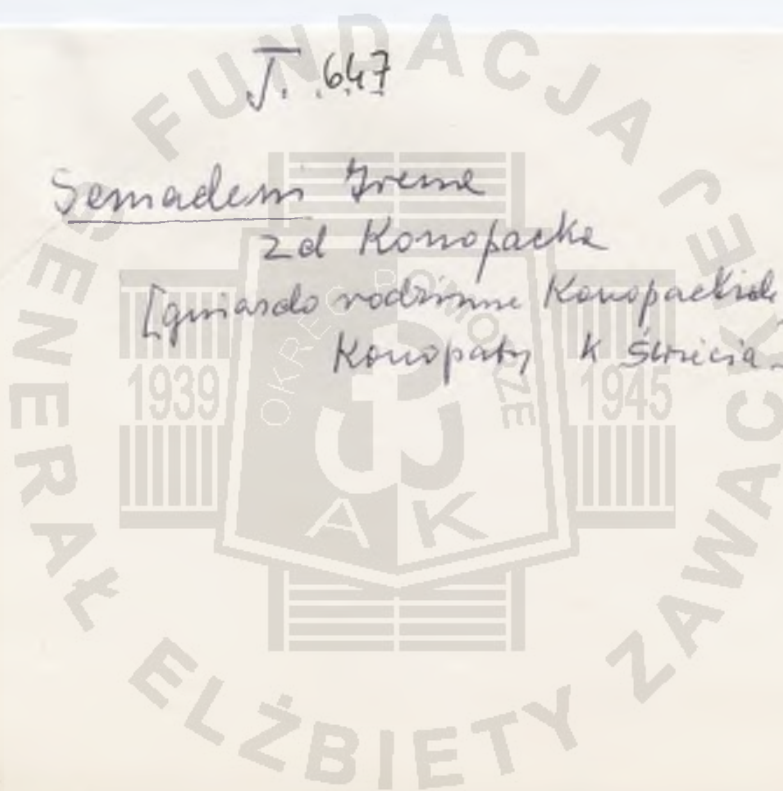 J. 647
Semadeni Irena
zd Konopacka
[gniazdo rodzinne Konopackich
Konopaty k Świecia
FUNDACJA GENERAŁ ELŻBIETY ZAWACKIEJ
OKRĘG POMORZE
1939 1945
AK